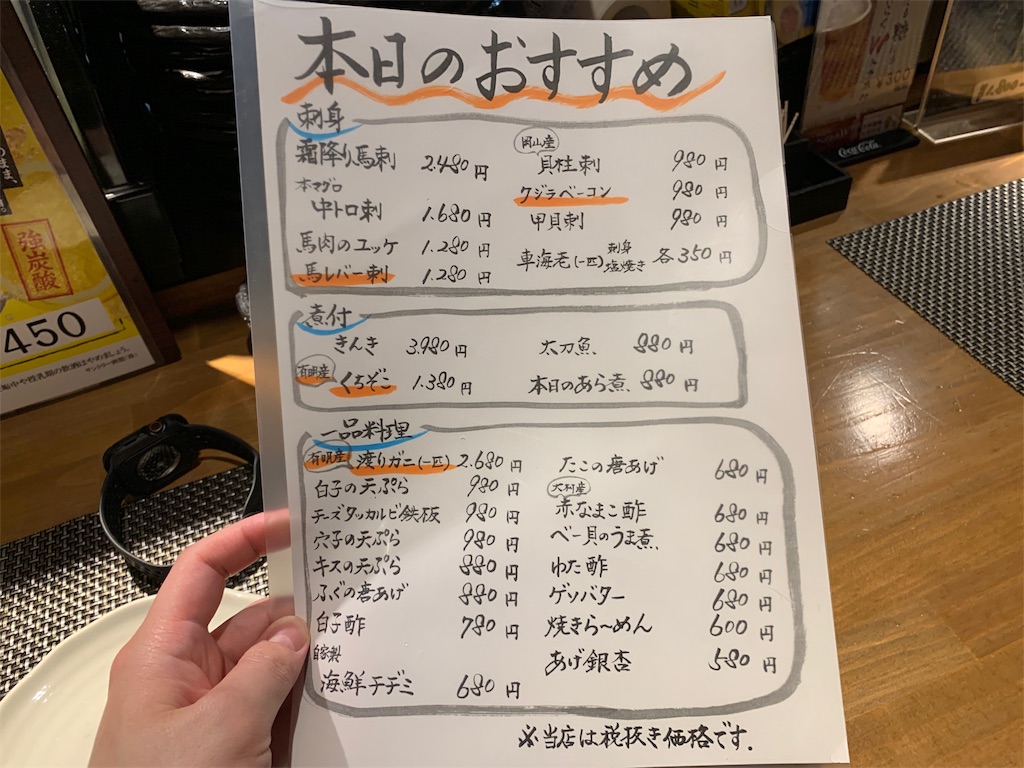 本日のおすすめ
刺身
霜降り馬刺 2.480円
本マグロ
中トロ刺 1.680円
馬肉のユッケ 1.280円
馬レバー刺 1.280円
岡山産
貝柱刺 980円
クジラベーコン 980円
甲貝刺 980円
車海老(一匹) 刺身 塩焼き 各350円
煮付
きんき 3.980円
有明産 くちぞこ 1.380円
太刀魚 880円
本日のあら煮 880円
一品料理
有明産 渡りガニ(一匹) 2.680円
白子の天ぷら 980円
チーズタッカルビ鉄板 980円
穴子の天ぷら 980円
キスの天ぷら 880円
ふぐの唐あげ 880円
白子酢 780円
自家製
海鮮チヂミ 680円
たこの唐あげ 680円
大村産
赤なまこ酢 680円
べー貝のうま煮 680円
ゆた酢 680円
ゲソバター 680円
焼きら〜めん 600円
あげ銀杏 580円
※当店は税抜き価格です.
強炭酸
450
Coca-Cola